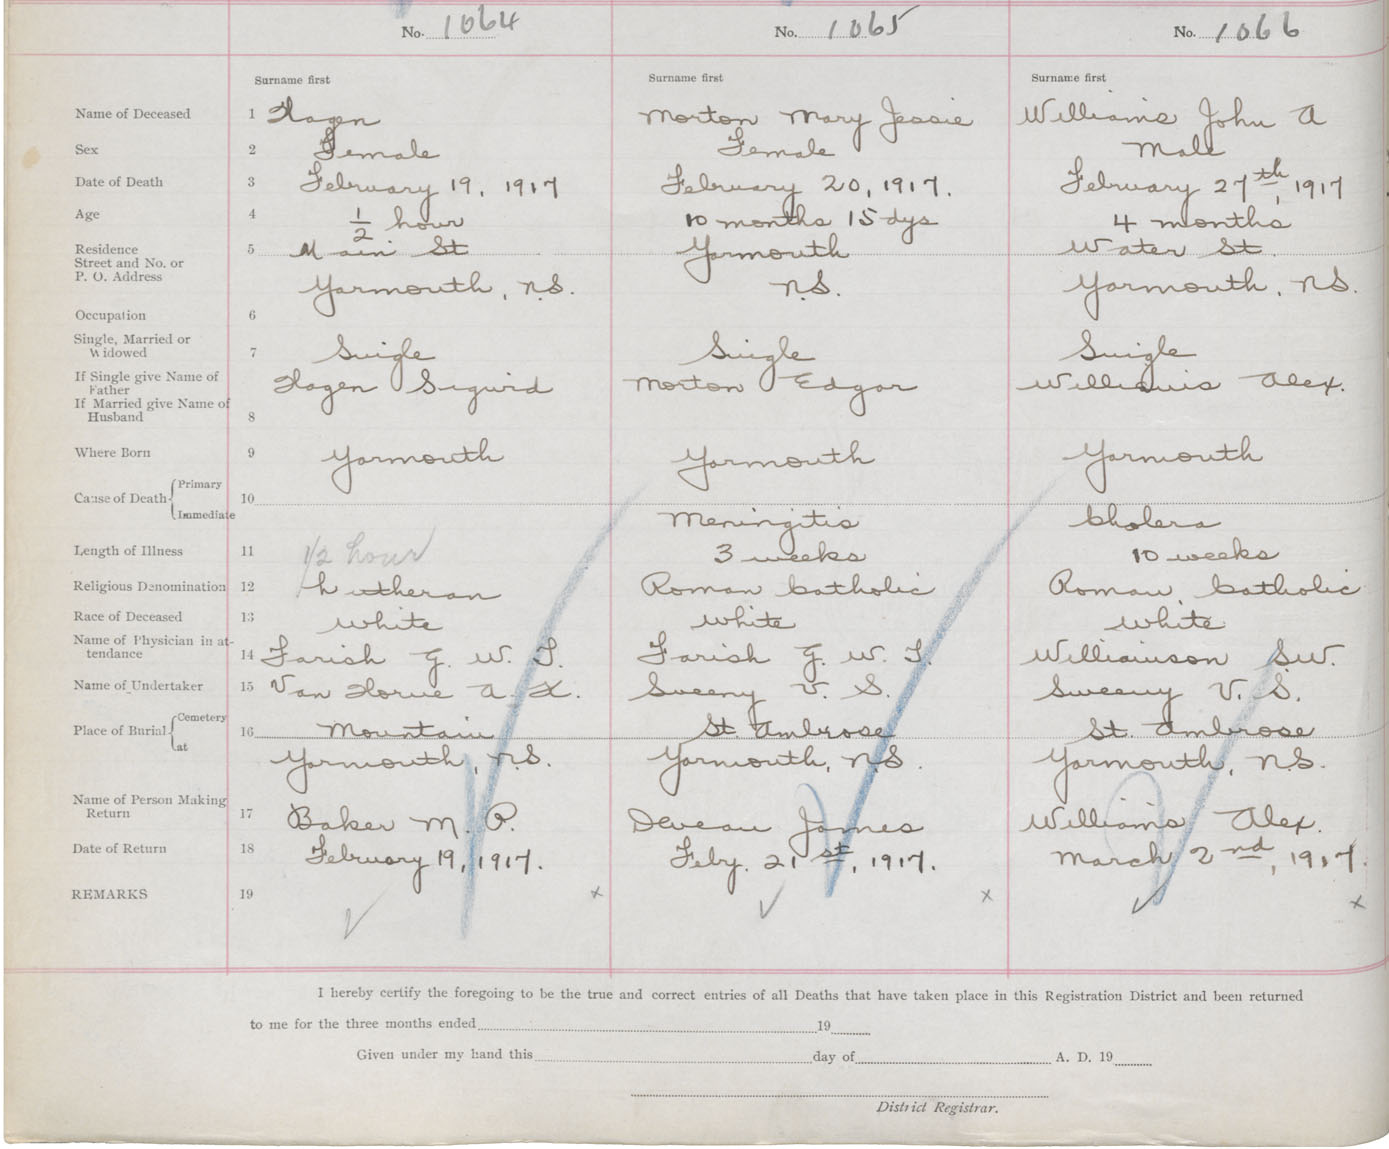 No. 1064 No. 1065 No. 1066
Surname first Surname first Surname first
Name of Deceased 1 Hagen Morton Mary Jessie Williams John A
Sex 2 Female Female Male
Date of Death 3 February 19, 1917 February 20, 1917. February 27th, 1917
Age 4 1/2 hour 10 months 15 dys 4 months
Residence 5 Main St Yarmouth Water St.
Street and No. or
P. O. Address Yarmouth, N.S. N.S. Yarmouth, N.S.
Occupation 6
Single, Married or
Widowed 7 Single Single Single
If Single give Name of
Father Hagen Sigurd Morton Edgar Williams Alex.
If Married give Name of
Husband 8
Where Born 9 Yarmouth Yarmouth Yarmouth
Primary
Cause of Death 10
Immediate Meningitis Cholera
Length of Illness 11 1/2 hour 3 weeks 10 weeks
Religious Denomination 12 Lutheran Roman Catholic Roman Catholic
Race of Deceased 13 White White White
Name of Physician in at-
tendance 14 Farish G. W. T. Farish G. W. T. Williamson S.W.
Name of Undertaker 15 Van Horne A. H. Sweeny V. S. Sweeny V. S.
Cemetery
Place of Burial 16 Mountain St. Ambrose St. Ambrose
at Yarmouth, N.S. Yarmouth, N.S. Yarmouth, N.S.
Name of Person Making
Return 17 Baker M. P. Deveau James Williams Alex.
Date of Return 18 February 19, 1917. Feby. 21st, 1917. March 2nd, 1917.
REMARKS 19 x x x
I hereby certify the foregoing to be the true and correct entries of all Deaths that have taken place in this Registration District and been returned
to me for the three months ended 19
Given under my hand this day of A. D. 19
District Registrar.